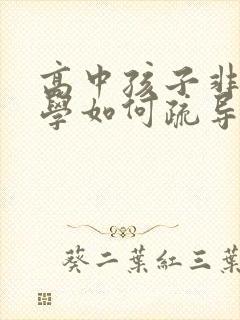 高中孩子非
學如何疏导
葵二葉紅三葉